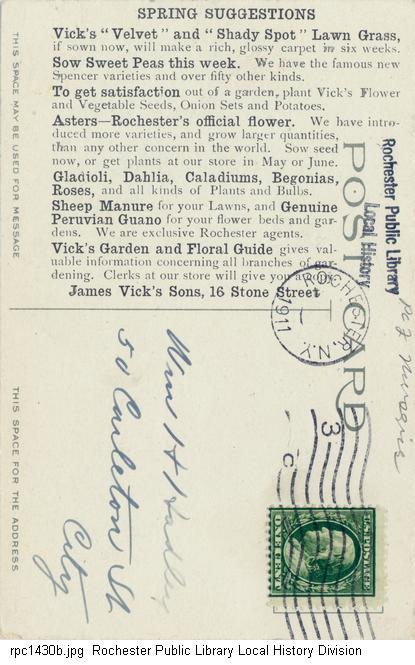 SPRING SUGGESTIONS
Vick's "Velvet" and "Shady Spot" Lawn Grass,
if sown now, will make a rich, glossy carpet in six weeks.
Sow Sweet Peas this week. We have the famous new
Spencer varieties and over fifty other kinds.
To get satisfaction out of a garden, plant Vick's Flower
and Vegetable Seeds, Onion Sets and Potatoes.
Asters—Rochester's official flower. We have intro-
duced more varieties, and grow larger quantities,
than any other concern in the world. Sow seed
now, or get plants at our store in May or June.
Gladioli, Dahlia, Caladiums, Begonias,
Roses, and all kinds of Plants and Bulbs.
Sheep Manure for your Lawns, and Genuine
Peruvian Guano for your flower beds and gar-
dens. We are exclusive Rochester agents.
Vick's Garden and Floral Guide gives val-
uable information concerning all branches of gar-
dening. Clerks at our store will give you a copy.
James Vick's Sons, 16 Stone Street
THIS SPACE MAY BE USED FOR MESSAGE
THIS SPACE FOR THE ADDRESS
POST CARD
Rochester Public Library
Local History
ROCHESTER, N.Y.
1911
3
C
Wm H Hadley
50 Carleton St
City
U.S. POSTAGE
ONE CENT
rpc1430b.jpg Rochester Public Library Local History Division